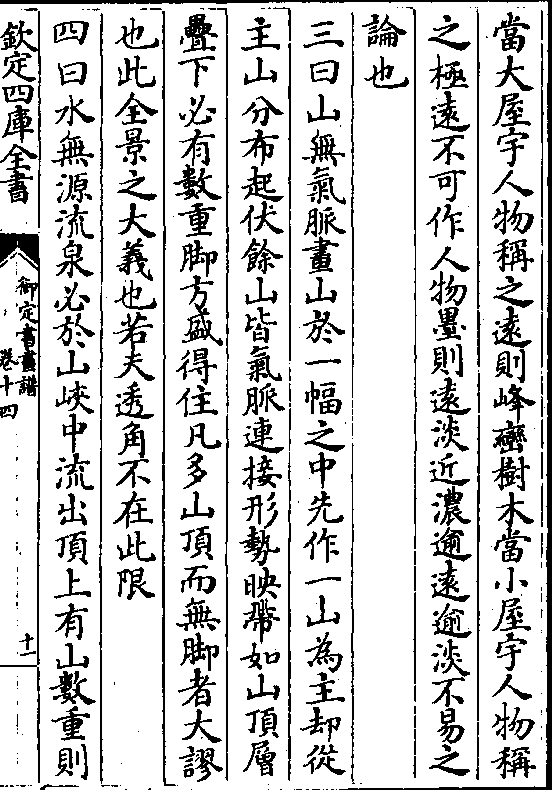 當大屋宇人物稱之遠則峰巒樹木當小屋宇人物稱
之極遠不可作人物墨則遠淡近濃逾遠逾淡不易之
論也
三曰山無氣脈畫山於一幅之中先作一山為主却從
主山分布起伏餘山皆氣脈連接形勢映帶如山頂層
疊下必有數重脚方盛得住凡多山頂而無脚者大謬
也此全景之大義也若夫透角不在此限
四曰水無源流泉必於山峽中流出頂上有山數重則
欽定四庫全書
御定書畫譜
卷十四
十一